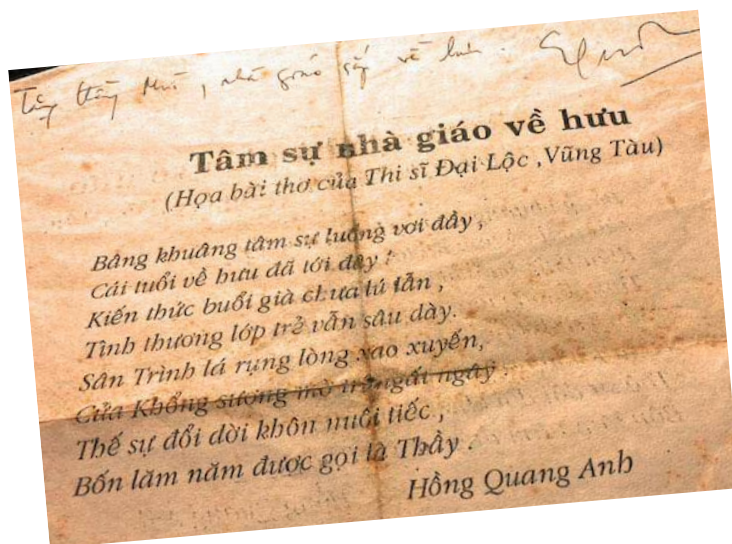 Tặng thầy , nhà giáo sắp về hưu .
Tâm sự nhà giáo về hưu
(Họa bài thơ của Thi sĩ Đại Lộc ,Vũng Tàu)
Bâng khuâng tâm sự luống vơi đầy ,
Cái tuổi về hưu đã tới đây !
Kiến thức buổi già chưa lú lẫn ,
Tình thương lớp trẻ vẫn sâu dày.
Sân Trình lá rụng lòng xao xuyến,
Cửa Khổng sương mờ trí ngất ngây .
Thế sự đổi dời khôn nuối tiếc ,
Bốn lăm năm được gọi là Thầy .
Hồng Quang Anh